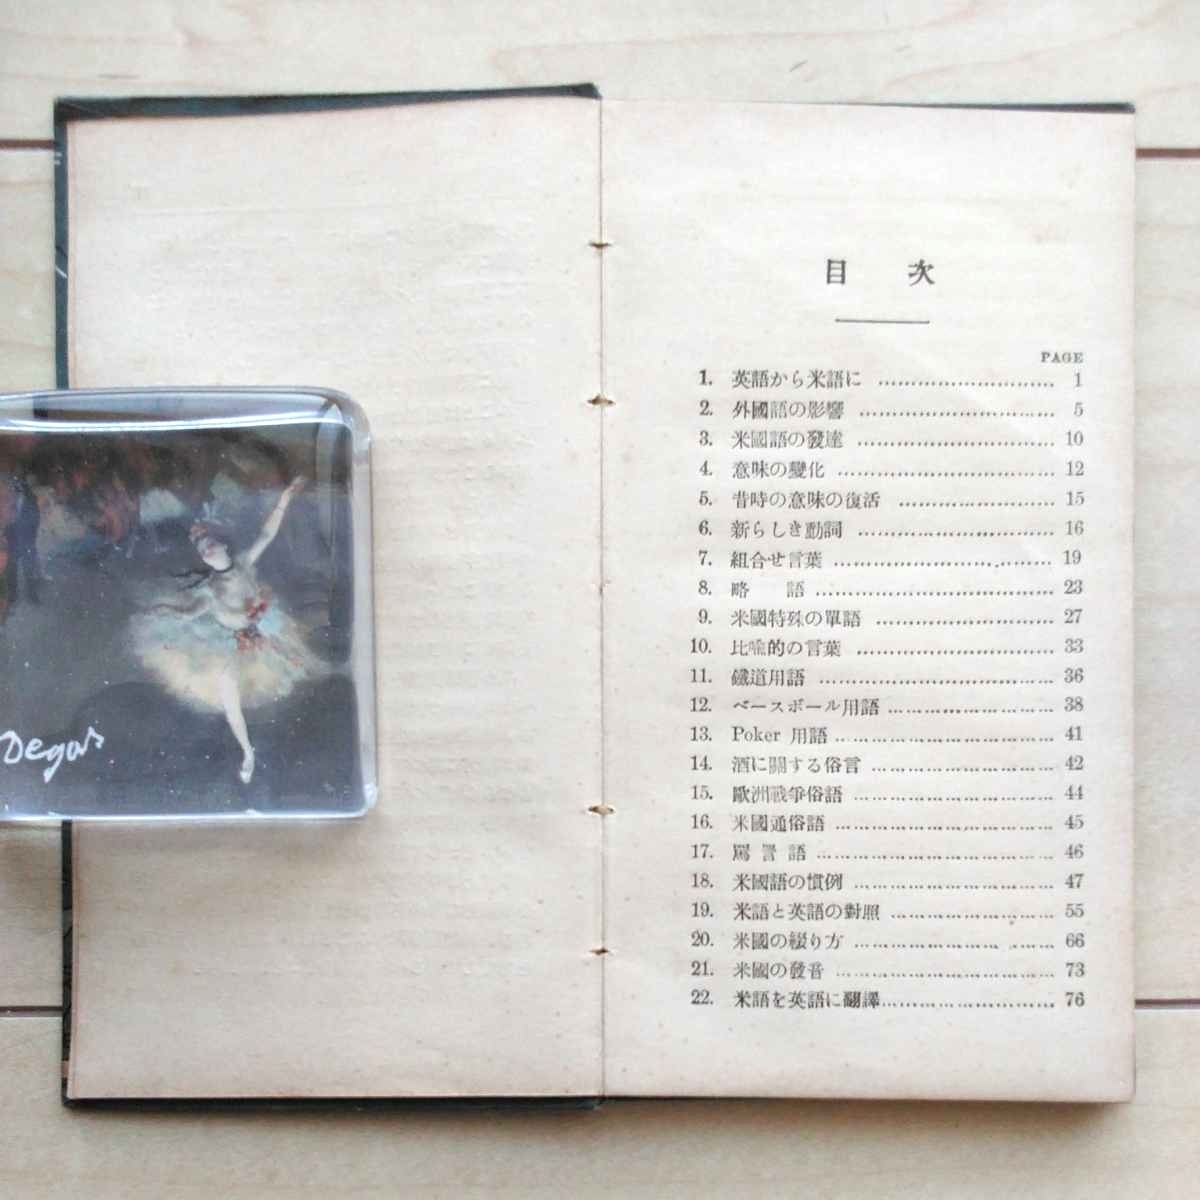 Degas
目 次
PAGE
1. 英語から米語に ........................... 1
2. 外國語の影響 ........................... 5
3. 米國語の發達 ........................... 10
4. 意味の變化 ........................... 12
5. 昔時の意味の復活 ........................... 15
6. 新らしき動詞 ........................... 16
7. 組合せ言葉 ........................... 19
8. 略 語 ........................... 23
9. 米國特殊の單語 ........................... 27
10. 比喩的の言葉 ........................... 33
11. 鐵道用語 ........................... 36
12. ベースボール用語 ........................... 38
13. Poker 用語 ........................... 41
14. 酒に關する俗言 ........................... 42
15. 歐洲戰爭俗語 ........................... 44
16. 米國通俗語 ........................... 45
17. 罵詈語 ........................... 46
18. 米國語の慣例 ........................... 47
19. 米語と英語の對照 ........................... 55
20. 米國の綴り方 ........................... 66
21. 米國の發音 ........................... 73
22. 米語を英語に翻譯 ........................... 76